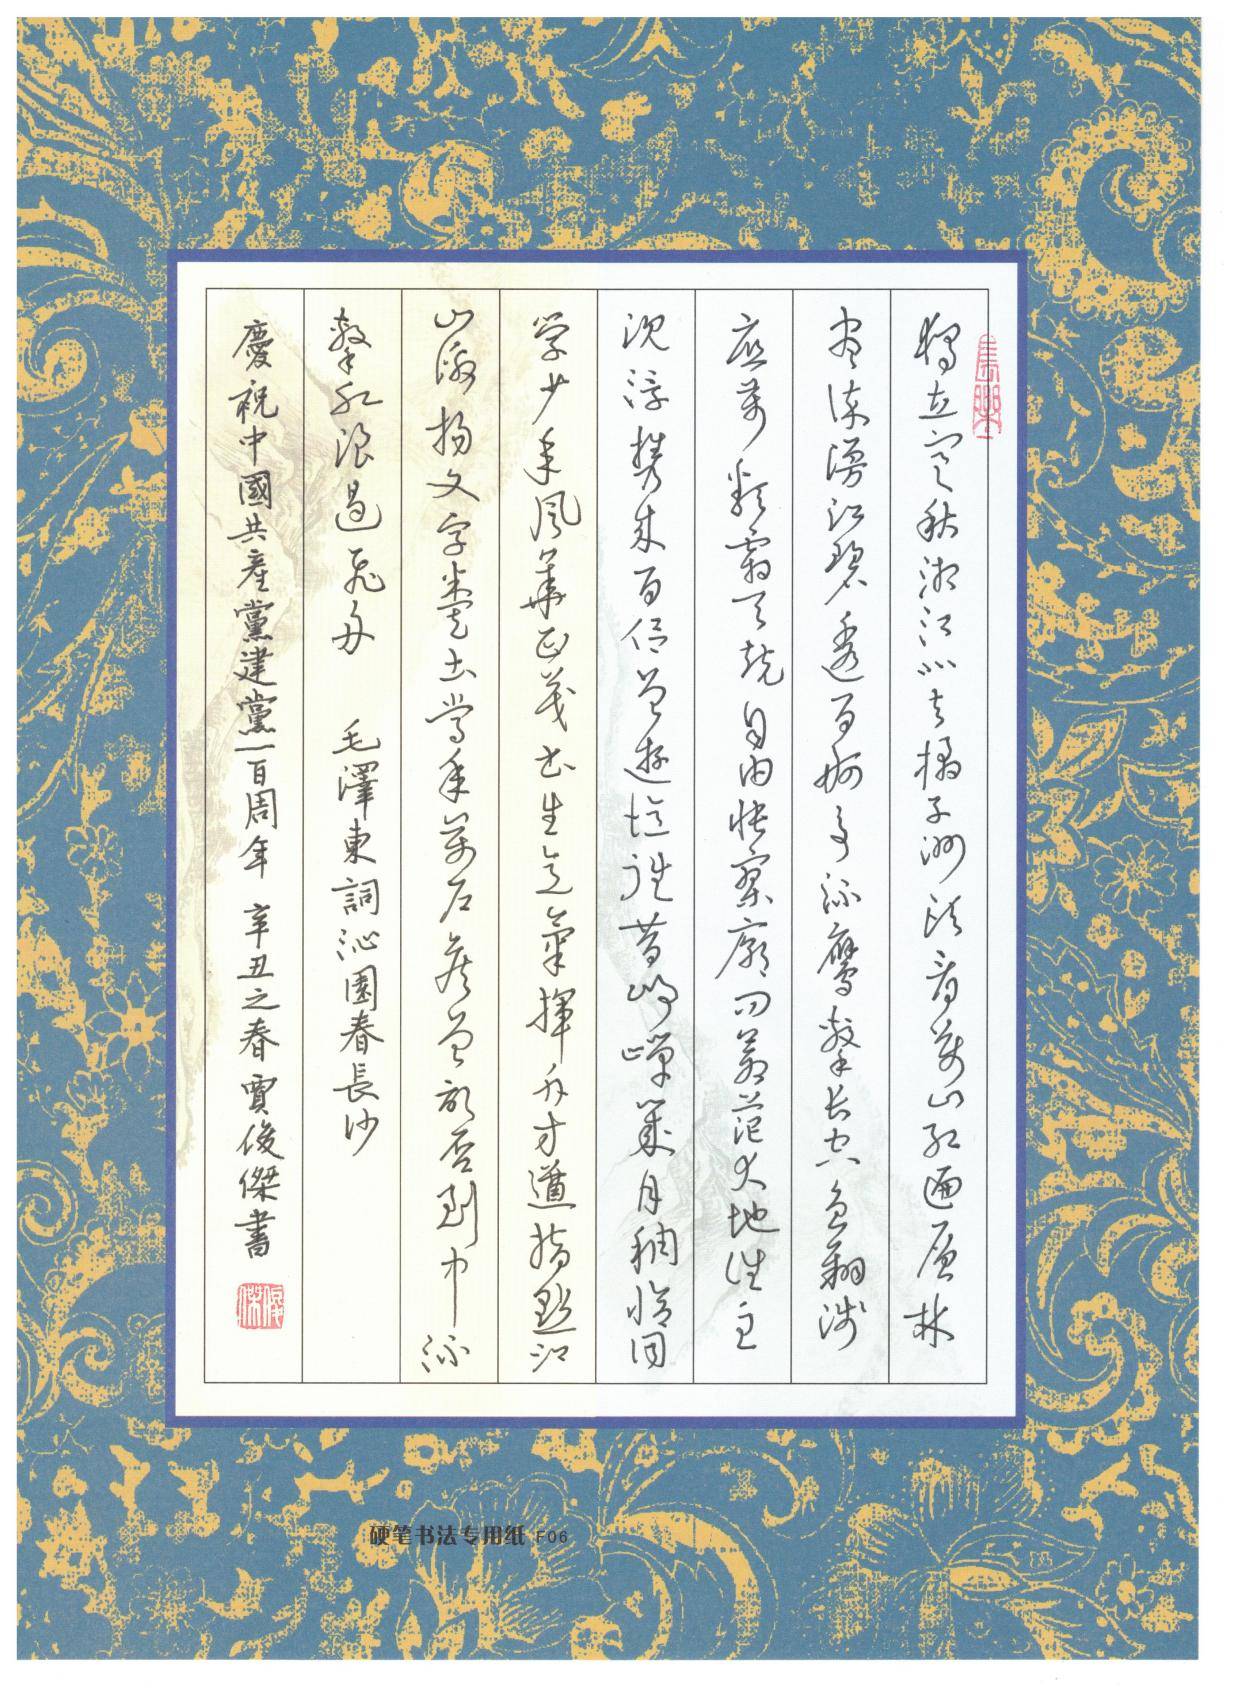 長樂
獨立寒秋湘江北去橘子洲頭看萬山紅遍層林
盡染漫江碧透百舸爭流鷹擊长空魚翔淺
底萬類霜天競自由悵寥廓問蒼茫大地誰主
沉浮攜來百侶曾遊憶往昔崢嶸歲月稠恰同
学少年風華正茂书生意氣揮斥方遒指點江
山激揚文字糞土當年萬户侯曾記否到中流
擊水浪遏飛舟 毛澤東詞沁園春長沙
慶祝中國共產黨建黨一百周年 辛丑之春 賈俊傑書
俊傑
硬笔书法专用纸 F06